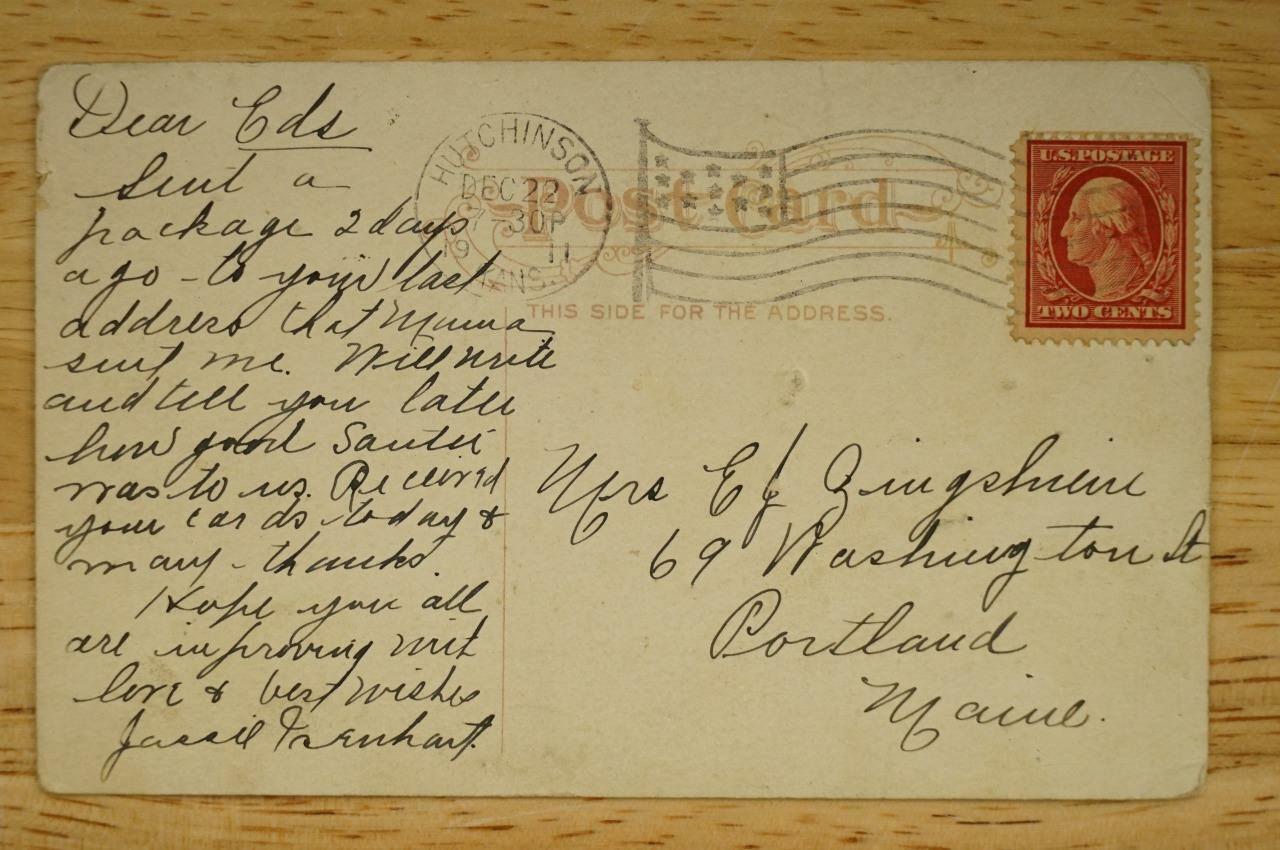 Dear Eds
Sent a
package 2 days
ago - to your last
address that Mama
sent me. Will write
and tell you later
how good Santa
was to us. Received
your cards today &
many - thanks.
Hope you all
are improving with
love & best wishes
Jessie Isenhart.
HUTCHINSON
DEC 22
7 30P
19 11
KANS.
Post Card
THIS SIDE FOR THE ADDRESS.
U.S. POSTAGE
TWO CENTS
Mrs E J Zingsheim
69 Washington St
Portland
Maine.